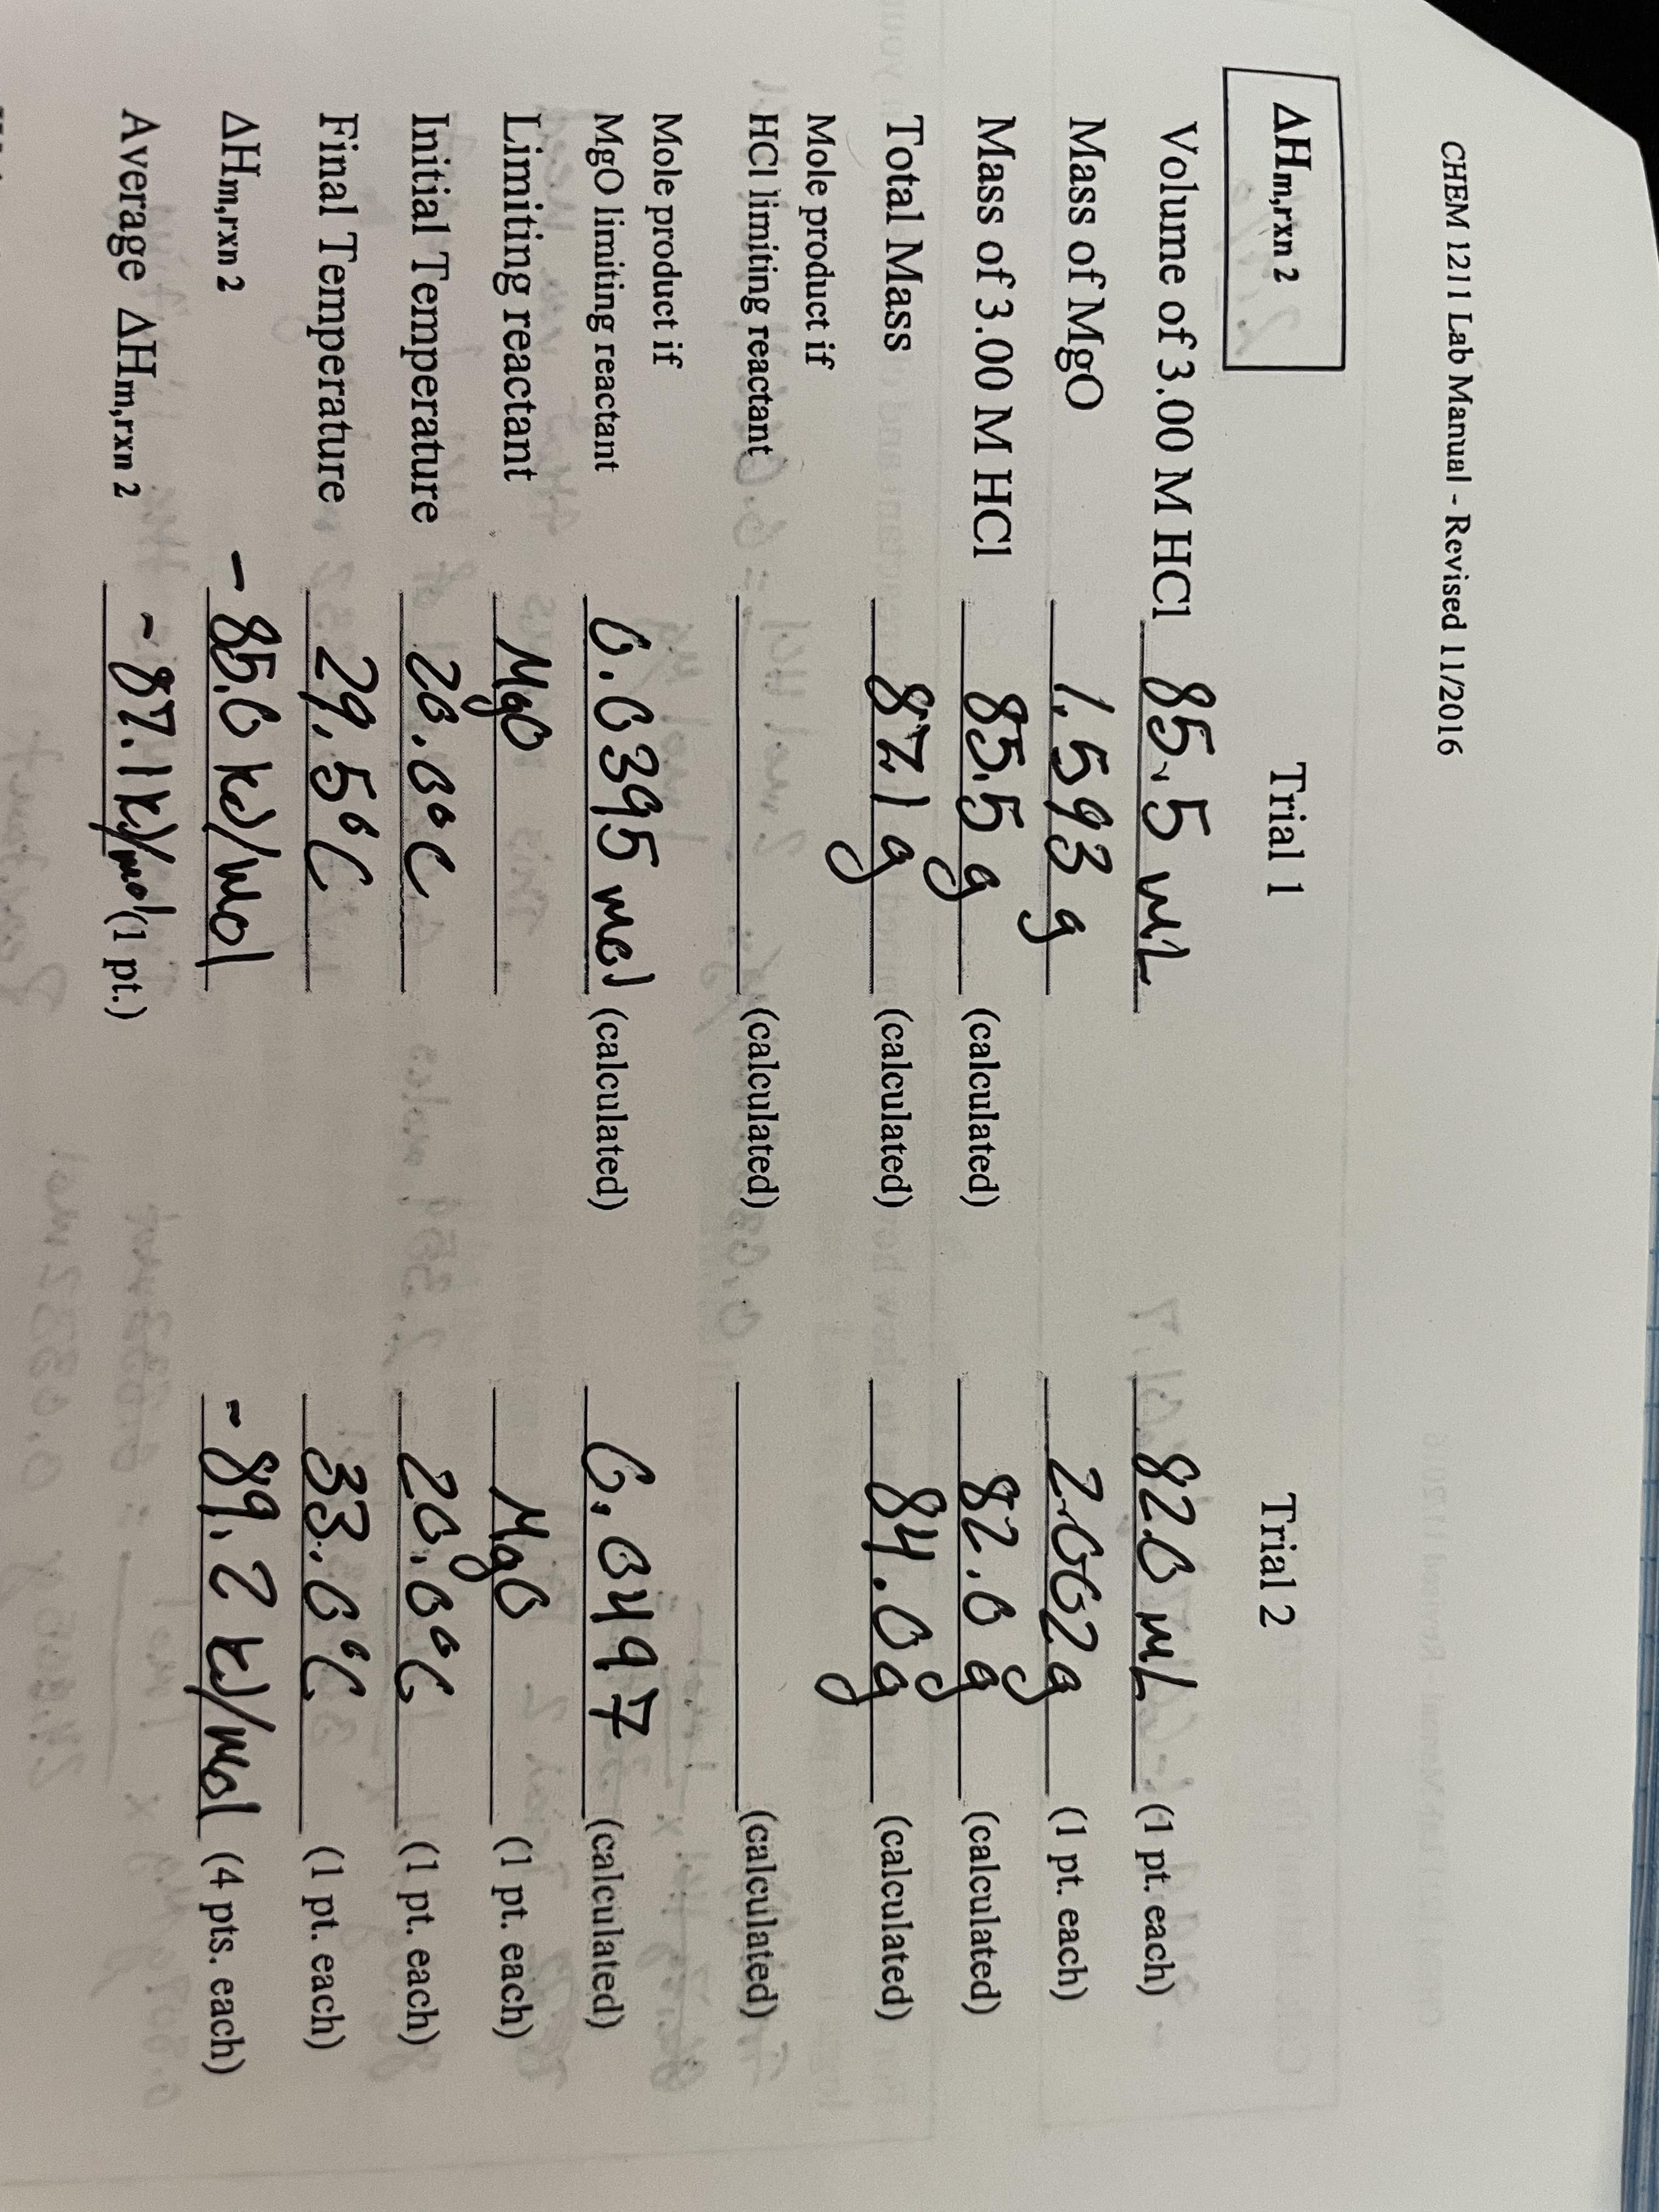 CHEM 1211 Lab Manual - Revised 11/2016
ΔHm,rxn 2
Trial 1 Trial 2
Volume of 3.00 M HCl 85.5 mL 82.0 mL (1 pt. each)
Mass of MgO 1.593 g 2.002 g (1 pt. each)
Mass of 3.00 M HCl 85.5 g (calculated) 82.0 g (calculated)
Total Mass 87.1 g (calculated) 84.0 g (calculated)
Mole product if
HCl limiting reactant (calculated) (calculated)
Mole product if
MgO limiting reactant 0.0395 mol (calculated) 0.0497 (calculated)
Limiting reactant MgO MgO (1 pt. each)
Initial Temperature 20.0°C 20.0°C (1 pt. each)
Final Temperature 29.5°C 33.0°C (1 pt. each)
ΔHm,rxn 2 -85.0 kJ/mol -89.2 kJ/mol (4 pts. each)
Average ΔHm,rxn 2 -87.1 kJ/mol (1 pt.)